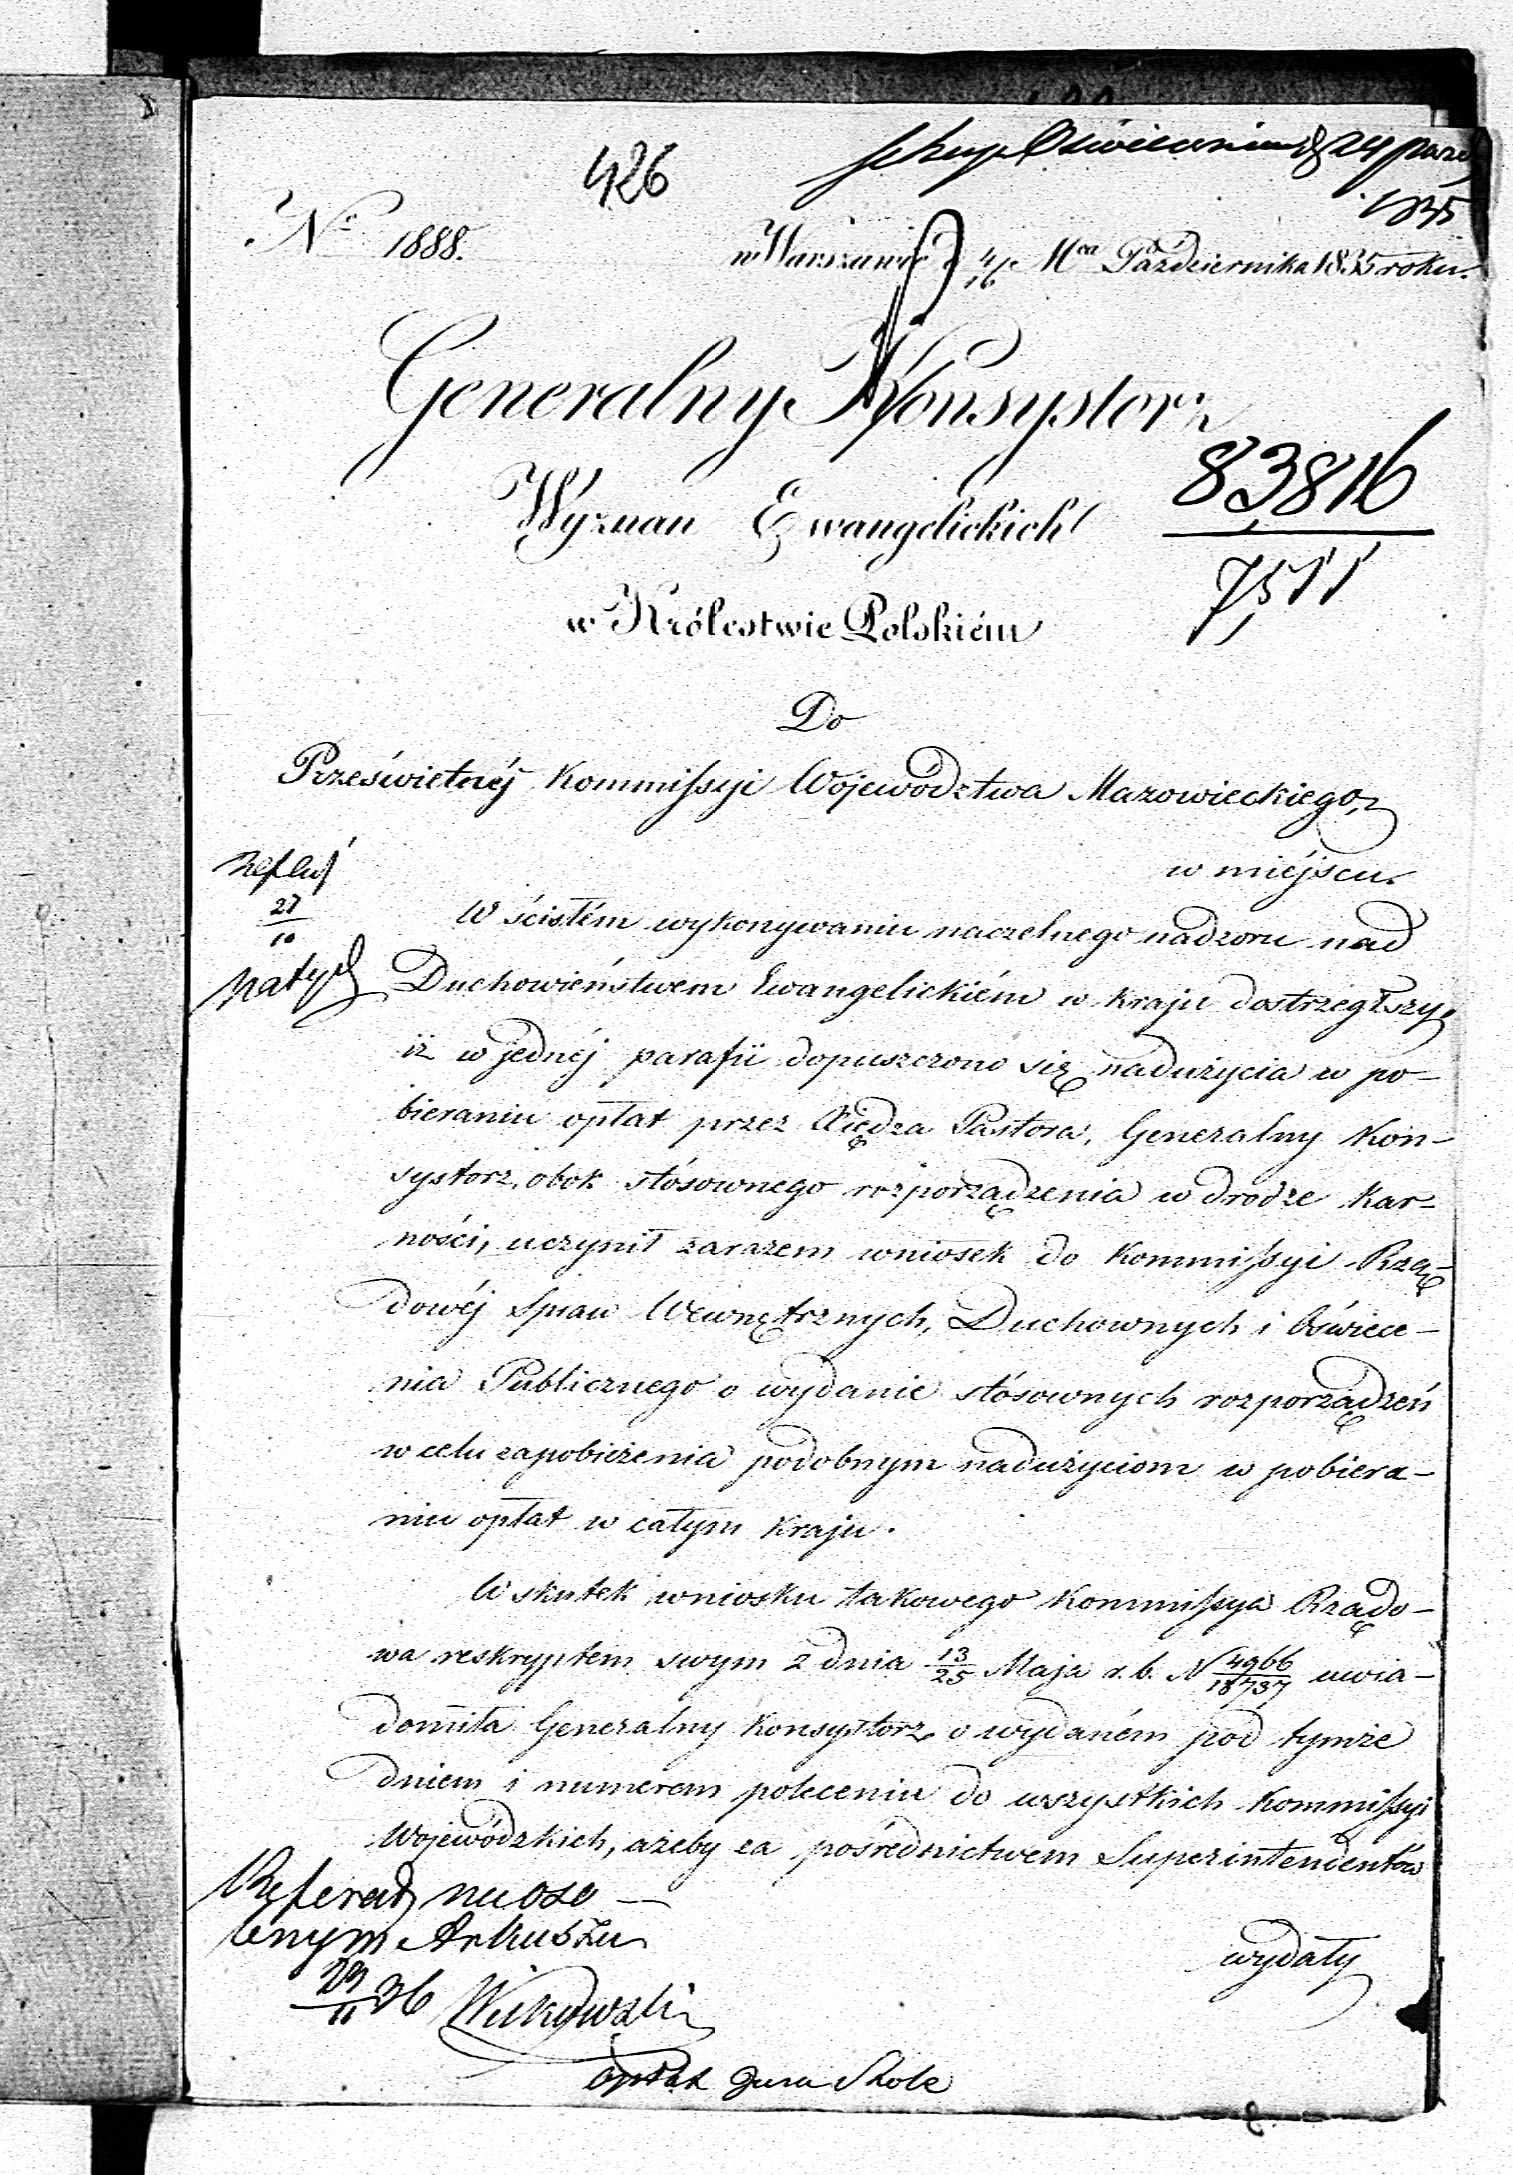 426
24 paźd
1835
Nº 1888.
w Warszawie d 4/16 Mca Października 1835 roku.
Generalny Konsystorz
Wyznań Ewangelickich
w Królestwie Polskiém
83816
7511
Do
Prześwietnéj Kommissyi Województwa Mazowieckiego,
w miéjscu.
27/10
W ścisłém wykonywaniu naczelnego nadzoru nad
Duchowieństwem Ewangelickiém w kraju dostrzegłszy,
iż w jednéj parafii dopuszczono się nadużycia w po-
bieraniu opłat przez Xiędza Pastora, Generalny Kon-
systorz, obok stósownego rozporządzenia w drodze kar-
ności, uczynił zarazem wniosek do Kommissyi Rzą-
dowéj Spraw Wewnętrznych, Duchownych i Oświece-
nia Publicznego o wydanie stósownych rozporządzeń
w celu zapobieżenia podobnym nadużyciom w pobiera-
niu opłat w całym kraju.
W skutek wniosku takowego Kommissya Rządo-
wa reskryptem swym z dnia 13/25 Maja r. b. N 4966/18737 uwia-
domiła Generalny Konsystorz o wydaném pod tymże
dniem i numerem poleceniu do wszystkich Kommissyi
Wojewódzkich, ażeby za pośrednictwem Superintendentów
wydały
Referat na oso-
bnym Arkuszu
29/11 36